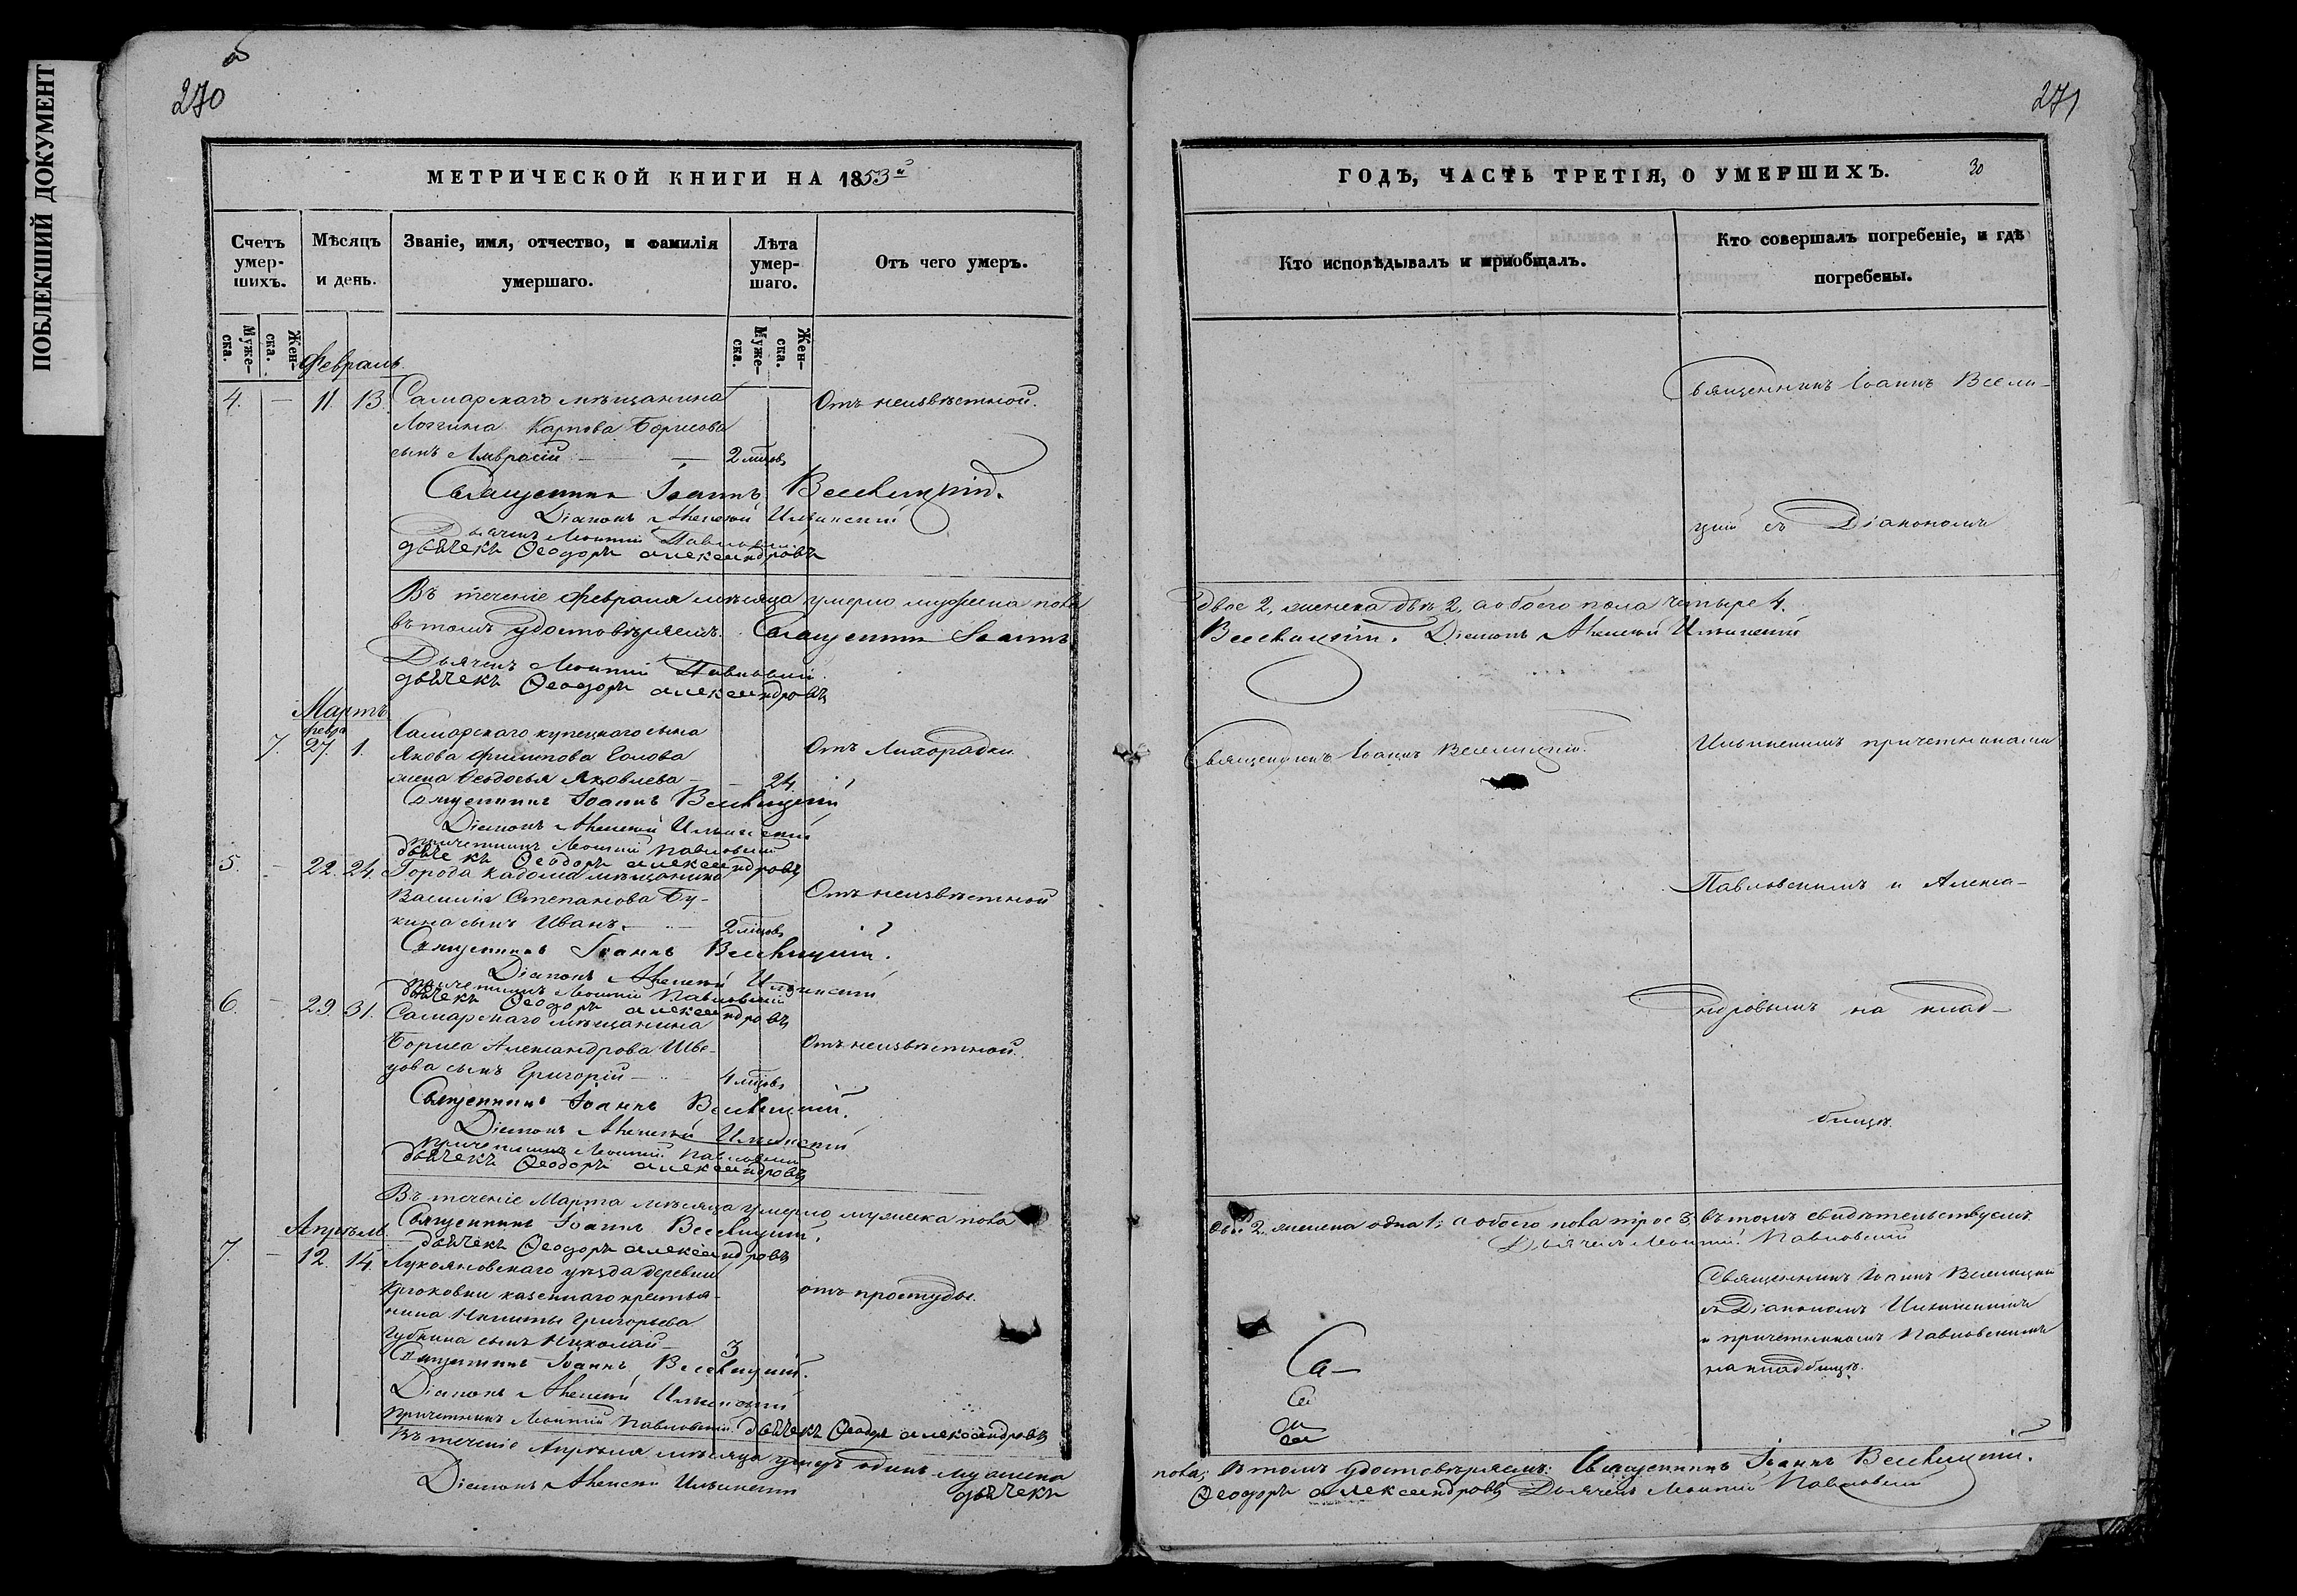 ПОБЛЕКШИЙ ДОКУМЕНТ
270
МЕТРИЧЕСКОЙ КНИГИ НА 1853й
Счетъ умер-шихъ.
Мѣсяцъ и день.
Званіе, имя, отчество, и фамилія умершаго.
Лѣта умер-шаго.
Отъ чего умеръ.
Муже-ска.
Жен-ска.
Муже-ска.
Жен-ска.
Февраль
4. — 11. 13. Самарскаго мѣщанина
Отъ неизвѣстной.
Логгина Карпова Борисова
сынъ Амвросій — 2 мѣсов
Священникъ Іоаннъ Веселицкій.
Діаконъ Алексѣй Ильинскій
Дьячекъ Павловскій
дьячекъ Ѳеодоръ Александровъ
Въ теченіе Февраля мѣсяца умерло мужеска пола
въ томъ удостовѣряемъ. Священникъ Іоаннъ
Дьячекъ Павловскій
дьячекъ Ѳеодоръ Александровъ
Мартъ
Февр.
7. 27. 1. Самарскаго купецкаго сына
Отъ Лихорадки
Якова Филипова
жена Ѳеодосья Яковлева — 24.
Священникъ Іоаннъ Веселицкій
Діаконъ Алексѣй Ильинскій
причетникъ Павловскій
дьячекъ Ѳеодоръ Александровъ
5. — 22. 24. Города Кадома мѣщанина
Отъ неизвѣстной
Василія Степанова Бу-
кина сынъ Иванъ. — 2 мѣсов
Священникъ Іоаннъ Веселицкій.
Діаконъ Алексѣй Ильинскій
причетникъ Павловскій
дьячекъ Ѳеодоръ Александровъ
6. — 29. 31. Самарскаго мѣщанина
Отъ неизвѣстной.
Бориса Александрова Шве-
цова сынъ Григорій — 4 мѣсов
Священникъ Іоаннъ Веселицкій.
Діаконъ Алексѣй Ильинскій
причетникъ Павловскій
дьячекъ Ѳеодоръ Александровъ
Въ теченіе Марта мѣсяца умерло мужеска пола
Священникъ Іоаннъ Веселицкій.
Апрѣль.
дьячекъ Ѳеодоръ Александровъ
7. — 12. 14. Лукояновскаго уѣзда деревни
Крюковки казеннаго крестья-
отъ простуды.
нина Никиты Григорьева
Губкина сынъ Николай — 3
Священникъ Іоаннъ Веселицкій.
Діаконъ Алексѣй Ильинскій
Причетникъ Павловскій дьячекъ Ѳеодоръ Александровъ
Въ теченіе Апрѣля мѣсяца умеръ одинъ мужеска
Діаконъ Алексѣй Ильинскій дьячекъ
271
ГОДЪ, ЧАСТЬ ТРЕТІЯ, О УМЕРШИХЪ.
30
Кто исповѣдывалъ и пріобщалъ.
Кто совершалъ погребеніе, и гдѣ погребены.
Священникъ Іоаннъ Весели-
цкій съ Діакономъ
двое 2, женска двѣ 2, а обоего пола четыре 4.
Веселицкій. Діаконъ Алексѣй Ильинскій
Священникъ Іоаннъ Веселицкій.
Ильинскимъ причетниками
Павловскимъ и Алекса-
ндровымъ на клад-
бищѣ.
2. женска одна 1; а обоего пола трое 3, въ томъ свидѣтельствуемъ.
Дьячекъ Павловскій
Священникъ Іоаннъ Веселицкій
съ Діакономъ Ильинскимъ
и причетникомъ Павловскимъ
на кладбищѣ.
Са-
пола; въ томъ удостовѣряемъ: Священникъ Іоаннъ Веселицкій.
Ѳеодоръ Александровъ Дьячекъ Павловскій